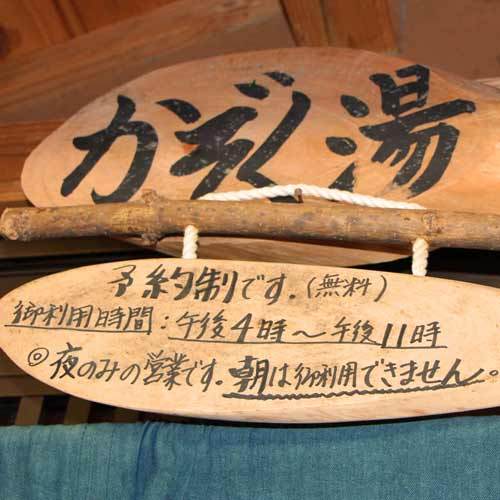 かぞく湯
予約制です。(無料)
御利用時間：午後4時～午後11時
◎夜のみの営業です。朝は御利用できません。